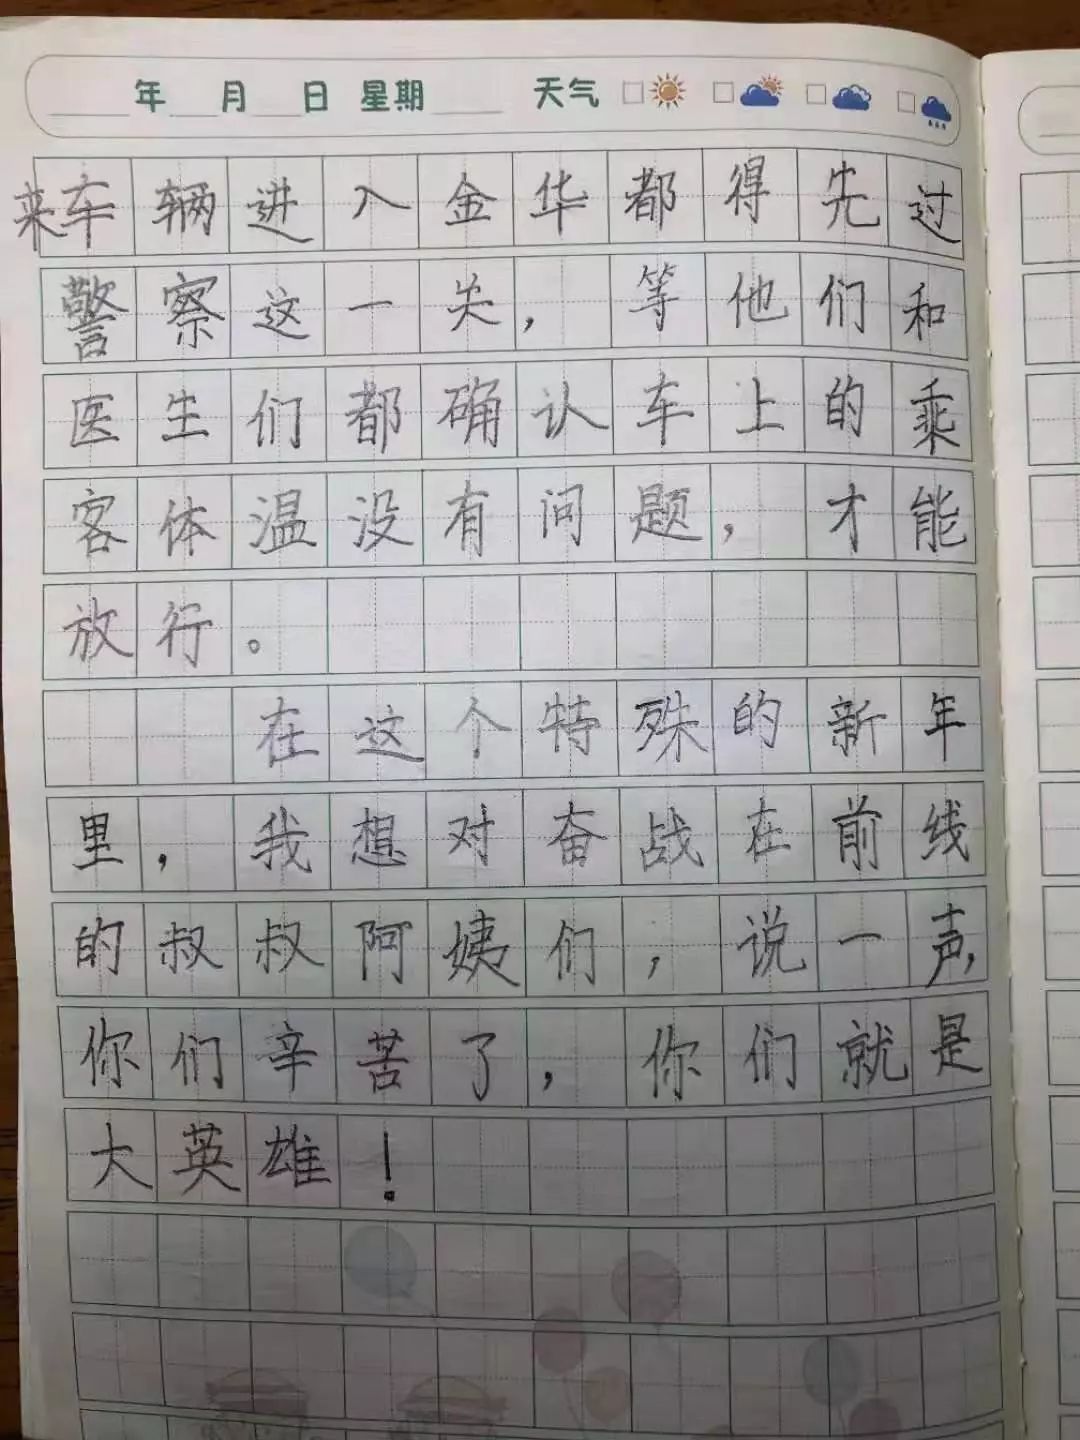 年 月 日 星期 天气
来车辆进入金华都得先过
警察这一关，等他们和
医生们都确认车上的乘
客体温没有问题，才能
放行。
在这个特殊的新年
里，我想对奋战在前线
的叔叔阿姨们，说一声，
你们辛苦了，你们就是
大英雄！